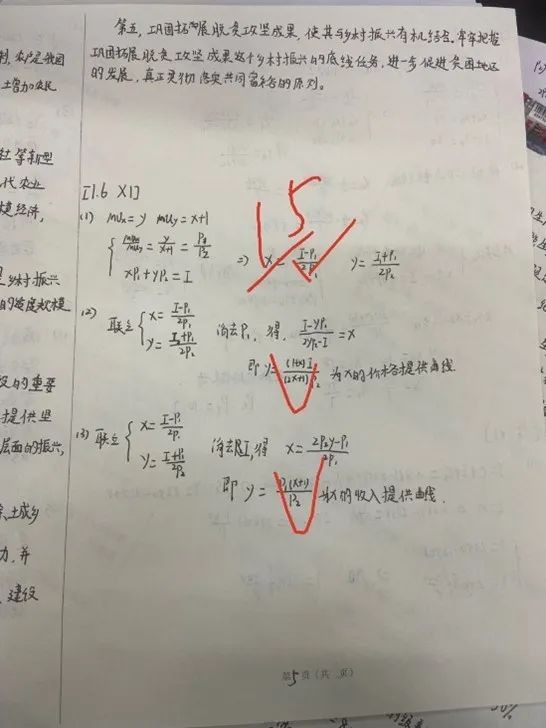 第五，巩固拓展脱贫攻坚成果，使其与乡村振兴有机结合。牢牢把握
巩固拓展脱贫攻坚成果这个乡村振兴的底线任务，进一步促进贫困地区
的发展，真正贯彻落实共同富裕的原则。
制，农户是我国
土增加农民
社等新型
代农业
模经济，
乡村振兴
的重要
提供坚
层面的振兴，
土成乡
力，并
建设
[1.6 X1]
15
(1) MUx = y MUy = x+1
{ MUx/MUy = y/(x+1) = P1/P2
xP1 + yP2 = I
=> x = (I-P1)/2P1 y = (I+P1)/2P2
(2) 联立 { x = (I-P1)/2P1
y = (I+P1)/2P2
消去P1，得，(I-yP2)/(2yP2-I) = x
即 y = (1+x)I/(2x+1)P2 为x的价格提供曲线
(3) 联立 { x = (I-P1)/2P1
y = (I+P1)/2P2
消去I，得 x = (2P2y-P1)/2P1
即 y = P1(x+1)/P2 的收入提供曲线.
第5页（共 页）